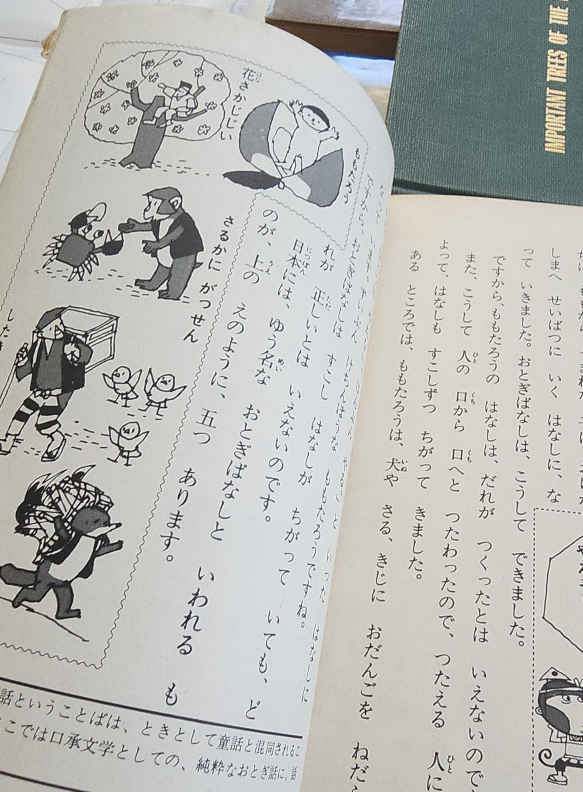 しまへ せいばつに いく はなしに、な
って いきました。おとぎばなしは、こうして できました。
ですから、ももたろうの はなしは、だれが つくったとは いえないので
また、こうして 人の 口から 口へと つたわったので、つたえる 人に
よって、はなしも すこしずつ ちがって きました。
ある ところでは、ももたろうは、犬や さる、きじに おだんごを ねだら
すこし はなしが ちがって いても、ど
れが 正しいとは いえないのです。
日本には、ゆう名な おとぎばなしと いわれる も
のが、上の えのように、五つ あります。
ももたろう
花さかじじい
さるかに がっせん
した
話ということばは、ときとして童話と混同される
こでは口承文学としての、純粋なおとぎ話に、
IMPORTANT TREES OF THE